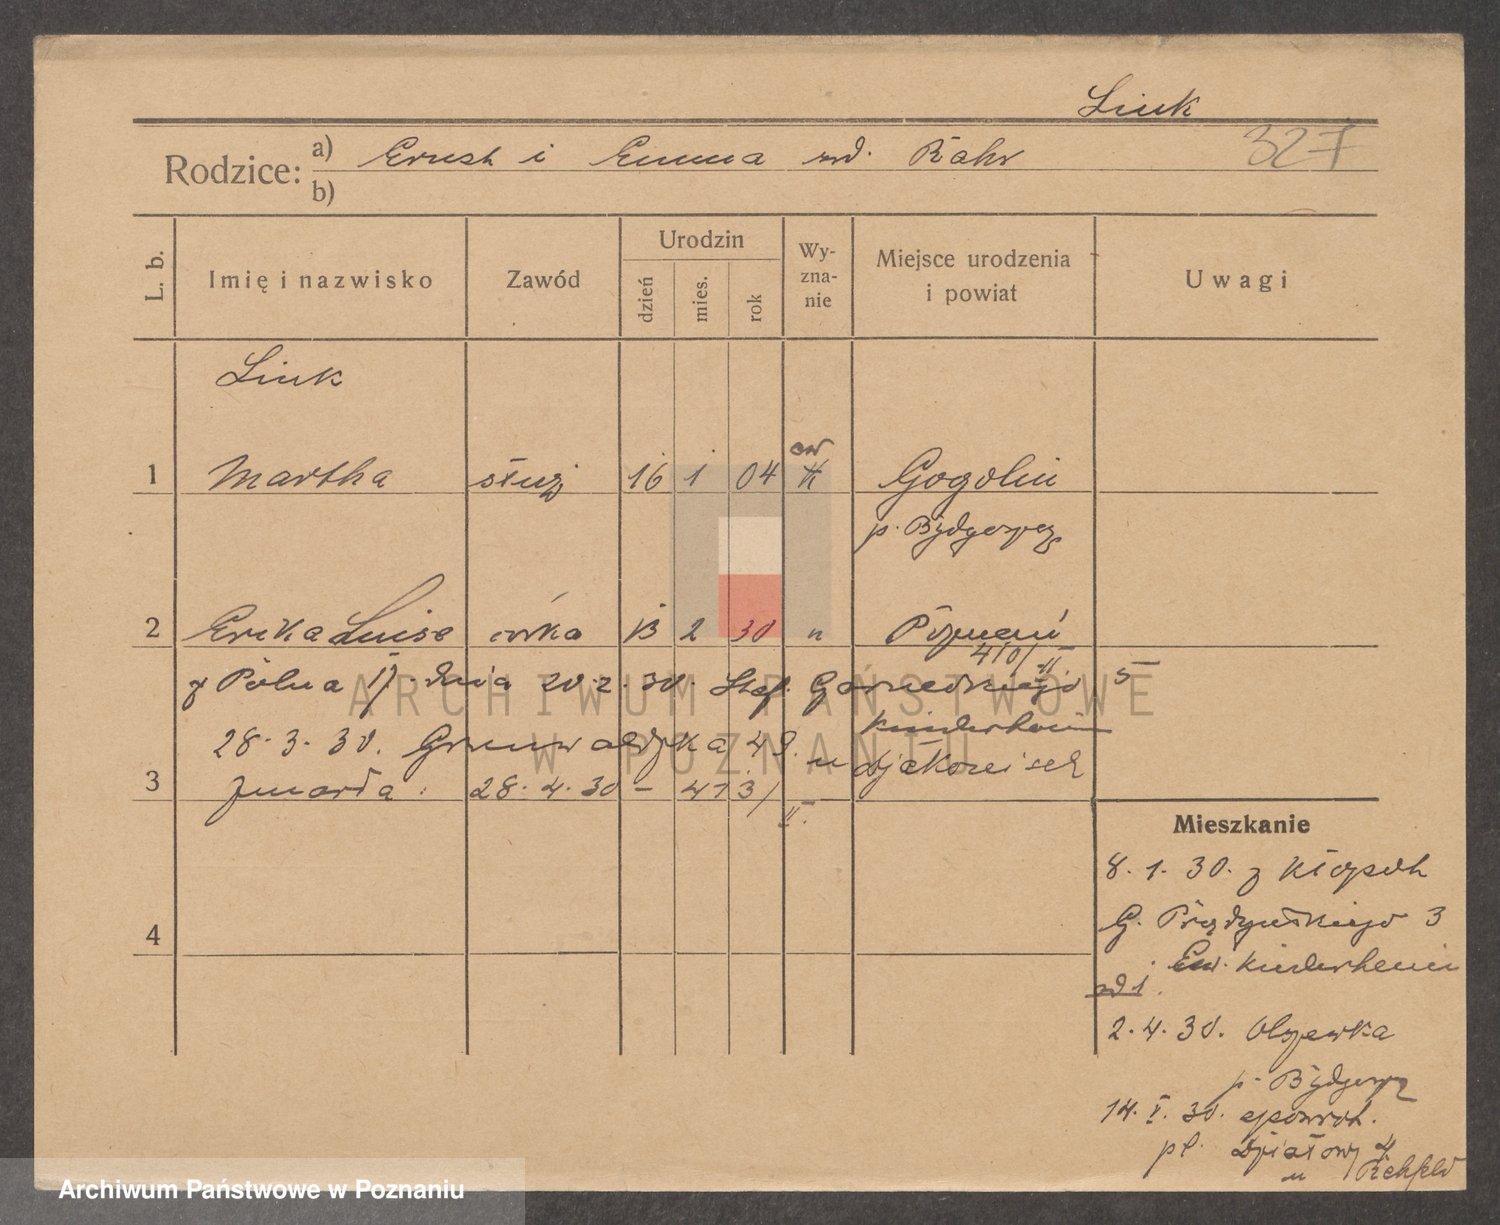 Link
327
Rodzice: a) Ernst i Emma zd. Rahr
b)
L. b.
Imię i nazwisko
Zawód
Urodzin
dzień
mies.
rok
Wy-
zna-
nie
Miejsce urodzenia
i powiat
Uwagi
Link
ew
1 Martha służ 16 1 04 Gogolin
p. Bydgoszcz
2 Erika Luise córka 13 2 30 " Poznań
410/II.
z Polna 17. dnia 20.2.30 Stef. Czarneckiego 5
Kinderheim
28.3.30. Grunwaldzka 49. u djakonisek
3 Zmarła 28.4.30 - 473/
II.
ARCHIWUM PAŃSTWOWE
W POZNANIU
Mieszkanie
8.1.30. z
4 G. Prądzyńskiego 3
Ew. Kinderheim
ad 1.
2.4.30. Olszewka
p. Bydgoszcz
14.V.30. spowrot.
pl. Działowy 4
u
Archiwum Państwowe w Poznaniu